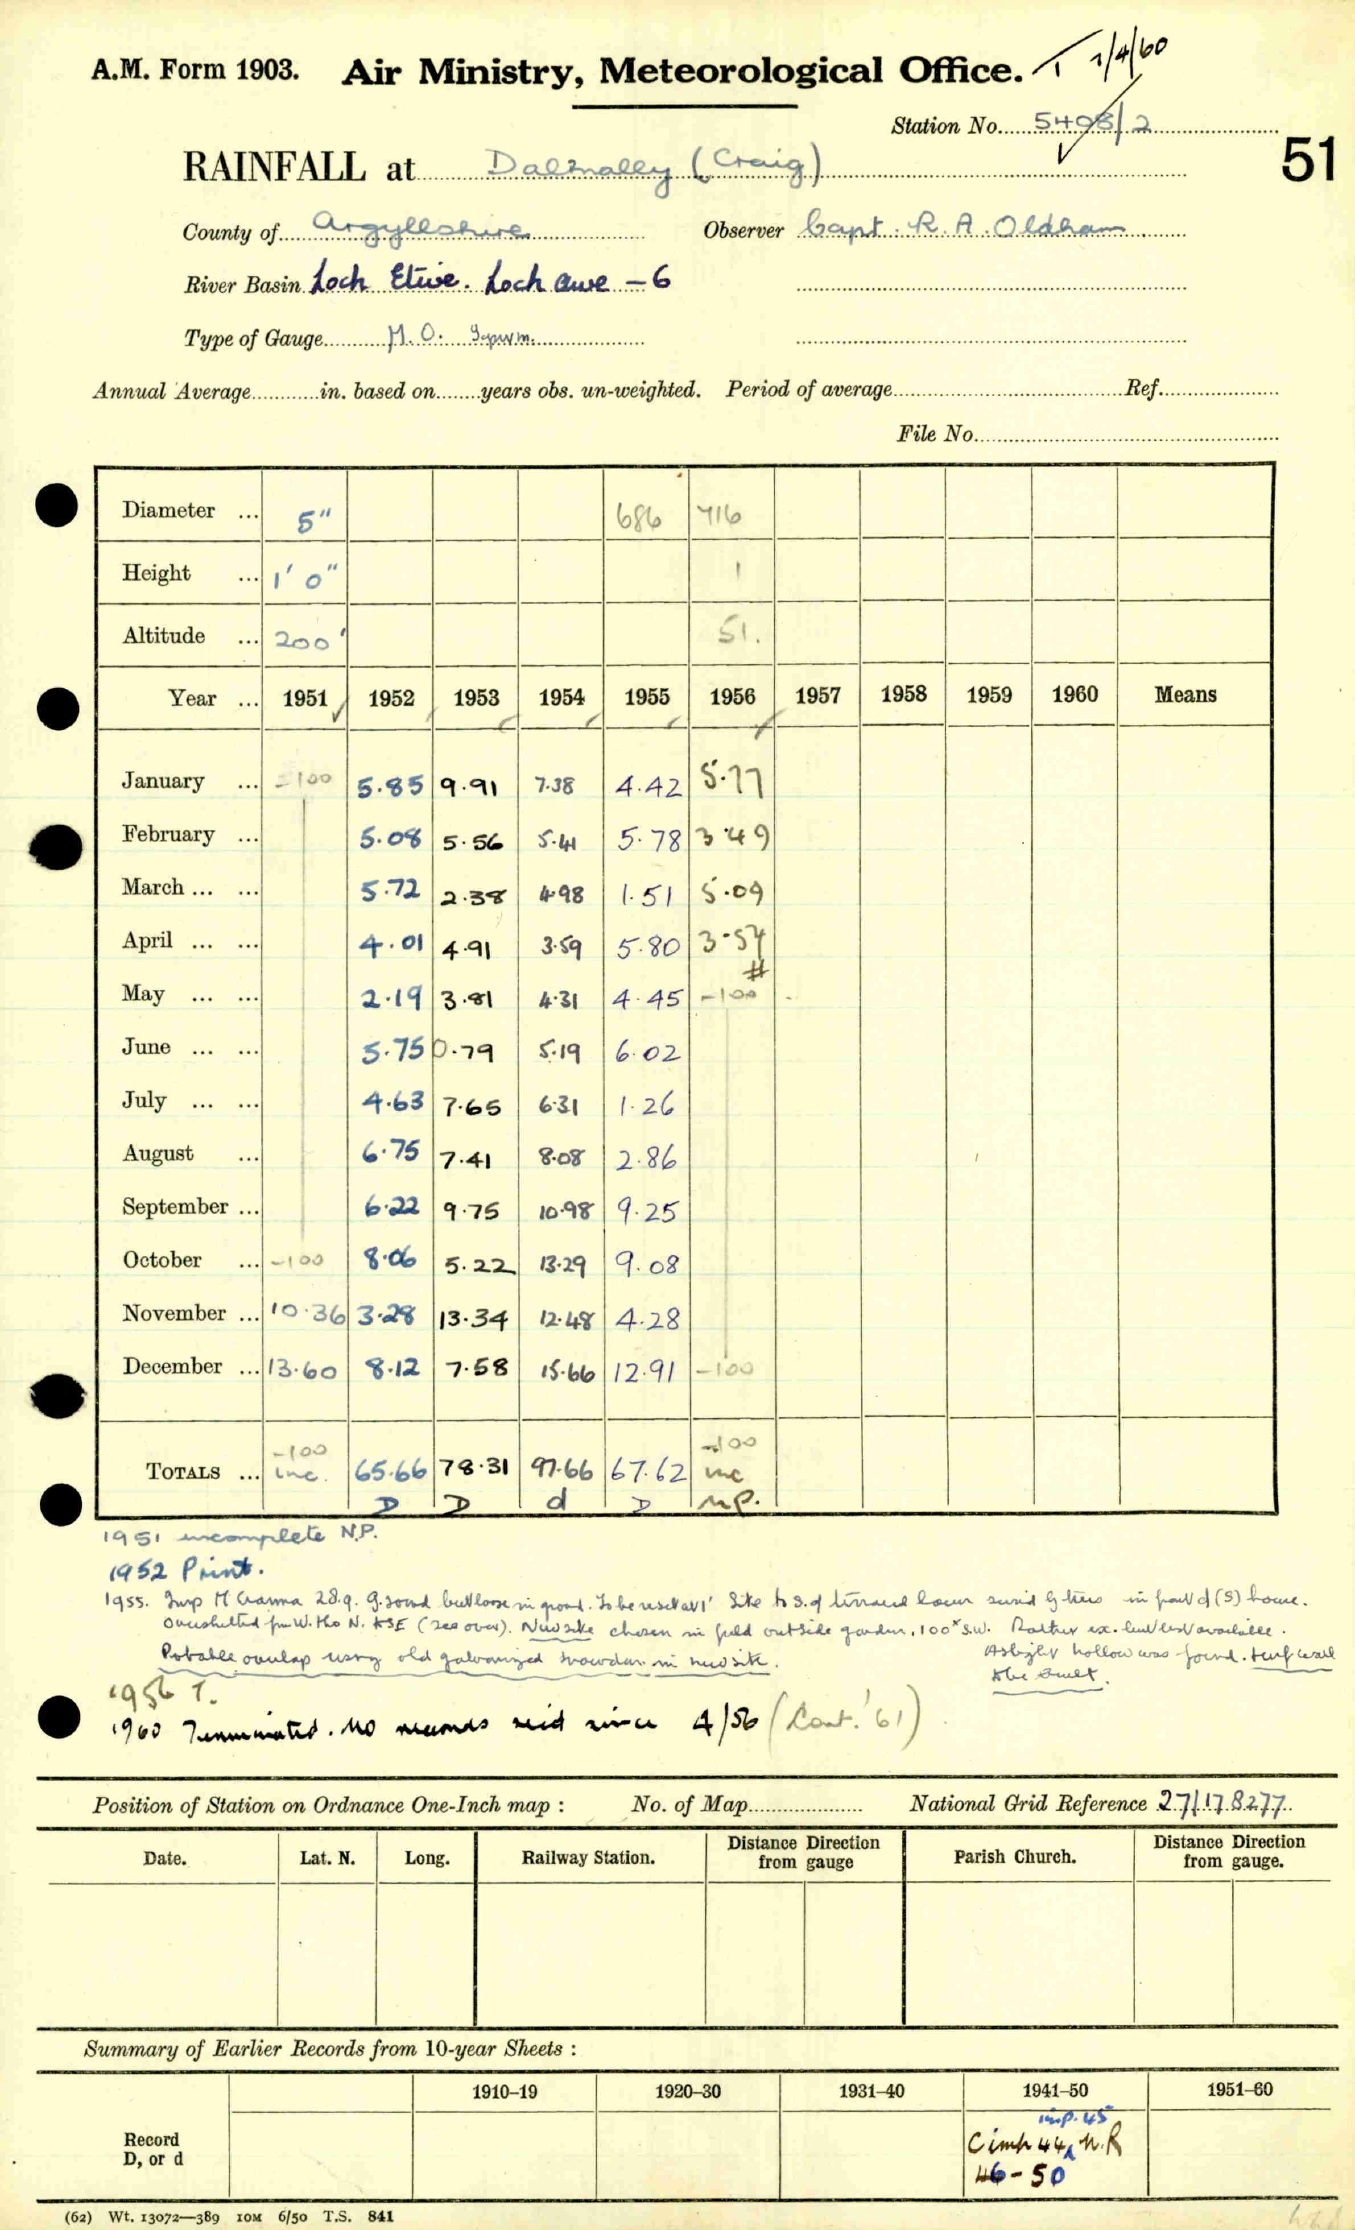 A.M. Form 1903. Air Ministry, Meteorological Office. T 1/4/60
Station No. 5498/2
51
RAINFALL at Dalmally (Craig)
County of Argyllshire Observer Capt. R. A. Oldham
River Basin Loch Etive. Loch Awe - 6
Type of Gauge M.O.
Annual Average in. based on years obs. un-weighted. Period of average Ref.
File No.
Diameter ... 5" 686 716
Height ... 1' 0" 1
Altitude ... 200' 51.
Year ... 1951 1952 1953 1954 1955 1956 1957 1958 1959 1960 Means
January ... -100 5.85 9.91 7.38 4.42 5.77
February ... 5.08 5.56 5.41 5.78 3.49
March ... ... 5.72 2.38 4.98 1.51 5.09
April ... ... 4.01 4.91 3.59 5.80 3.57
#
May ... ... 2.19 3.81 4.31 4.45 -100
June ... ... 5.75 0.79 5.19 6.02
July ... ... 4.63 7.65 6.31 1.26
August ... 6.75 7.41 8.08 2.86
September ... 6.22 9.75 10.98 9.25
October ... -100 8.06 5.22 13.29 9.08
November ... 10.36 3.28 13.34 12.48 4.28
December ... 13.60 8.12 7.58 15.66 12.91 -100
-100 -100
TOTALS ... inc. 65.66 78.31 97.66 67.62 inc
D D d D N.P.
1951 incomplete N.P.
1952 Print.
1955. Insp M Channa 28.9. G. sound but loose in ground. To be reset at 1' Site to S. of terraced lawn in front of (S) house.
Oversheltered from W. tho N. to SE (see over). New site chosen in field outside garden, 100x S.W. Rather ex. but best available.
Probable overlap using old galvanized snowdon in new site. A slight hollow was found. turf wall
to be built.
1956 T.
1960 Terminated. No records recd since 4/56 (Cont. '61)
Position of Station on Ordnance One-Inch map : No. of Map National Grid Reference 27/178277
Date. Lat. N. Long. Railway Station. Distance Direction from gauge Parish Church. Distance Direction from gauge.
Summary of Earlier Records from 10-year Sheets :
1910–19 1920–30 1931–40 1941–50 1951–60
insp. 45
Record D, or d 44 N.R
46-50
(62) Wt. 13072—389 10M 6/50 T.S. 841